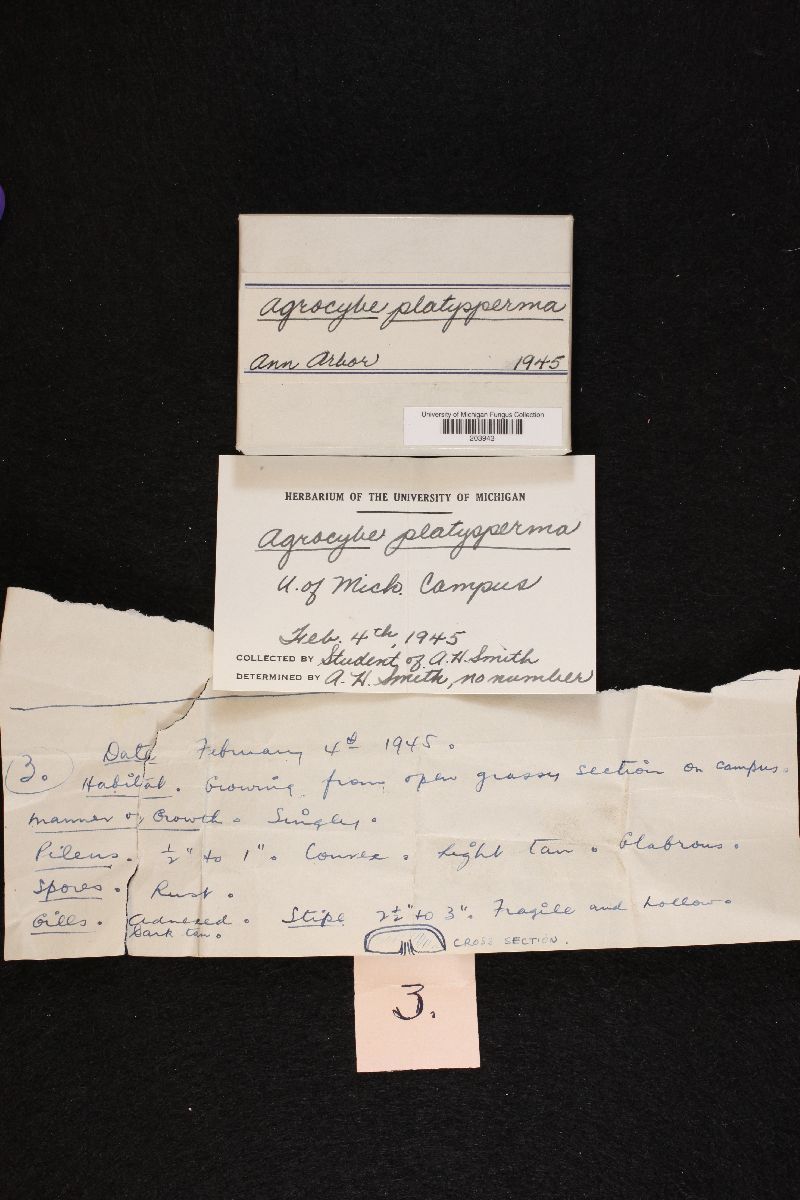 Agrocybe platysperma
Ann Arbor 1945
University of Michigan Fungus Collection
203943
HERBARIUM OF THE UNIVERSITY OF MICHIGAN
Agrocybe platysperma
U. of Mich. Campus
Feb. 4th, 1945
COLLECTED BY Student of A.H. Smith
DETERMINED BY A. H. Smith, no number
3. Date February 4th 1945.
Habitat. Growing from open grassy section on campus.
Manner of Growth. Singly.
Pileus. ½" to 1". Convex. Light tan. Glabrous.
Spores. Rust.
Gills. Adnexed. Stipe 2½" to 3". Fragile and hollow.
Dark tan. CROSS SECTION.
3.